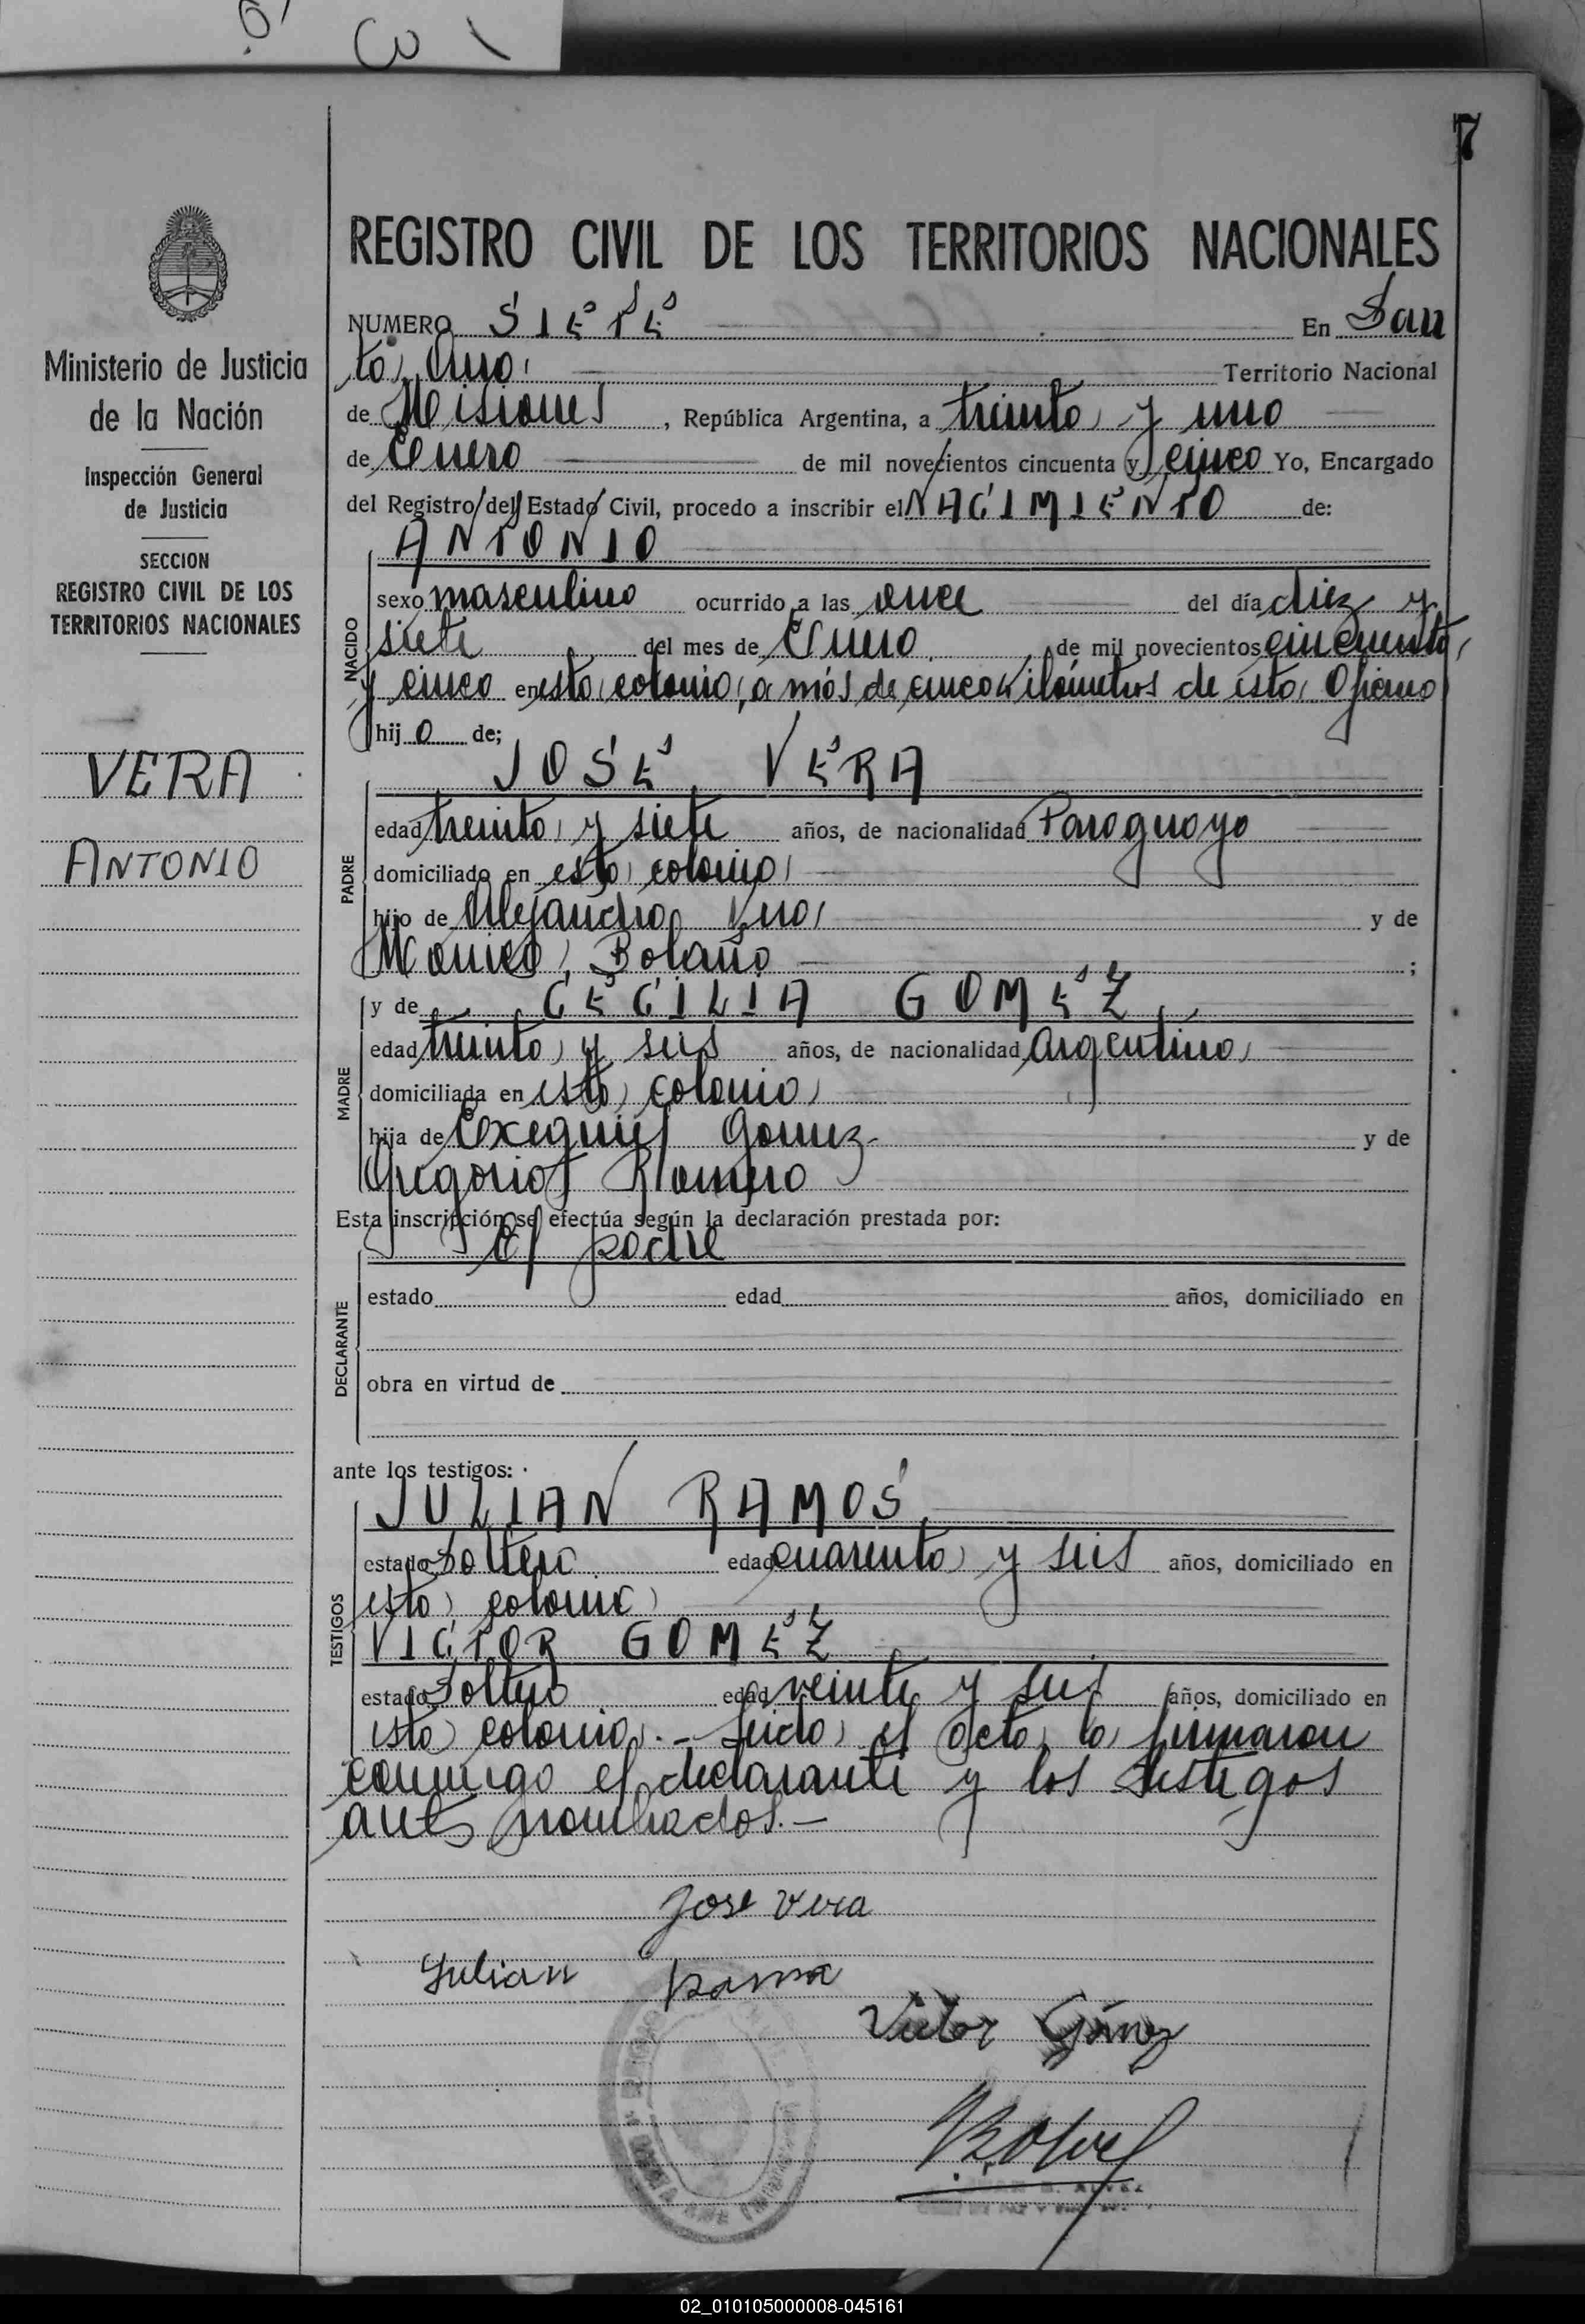 7
REGISTRO CIVIL DE LOS TERRITORIOS NACIONALES
Ministerio de Justicia
de la Nación
Inspección General
de Justicia
SECCION
REGISTRO CIVIL DE LOS
TERRITORIOS NACIONALES
VERA
ANTONIO
NUMERO SIETE En San
ta Ana Territorio Nacional
de Misiones, República Argentina, a treinta y uno
de Enero de mil novecientos cincuenta y cinco Yo, Encargado
del Registro del Estado Civil, procedo a inscribir el NACIMIENTO de:
ANTONIO
NACIDO
sexo masculino ocurrido a las once del día diez y
siete del mes de Enero de mil novecientos cincuenta
y cinco en esta colonia, a más de cinco kilómetros de esta Oficina
hijo de;
JOSE VERA
PADRE
edad treinta y siete años, de nacionalidad Paraguaya
domiciliado en esta colonia
hijo de Alejandro Vera y de
Monica Bolaño ;
MADRE
y de CECILIA GOMEZ
edad treinta y seis años, de nacionalidad Argentina
domiciliada en esta colonia
hija de Exequiel Gomez y de
Gregoria Romero
Esta inscripción se efectúa según la declaración prestada por:
El padre
DECLARANTE
estado edad años, domiciliado en
obra en virtud de
ante los testigos:
JULIAN RAMOS
TESTIGOS
estado Soltero edad cuarenta y seis años, domiciliado en
esta colonia
VICTOR GOMEZ
estado Soltero edad veinte y seis años, domiciliado en
esta colonia.- Leida el acta, la firmaron
conmigo el declarante y los testigos
antes nombrados.-
Jose Vera
Julian
Victor Gómez
02_010105000008-045161